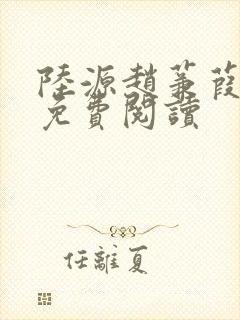 陸源趙蒹葭
免費閱讀
任離夏